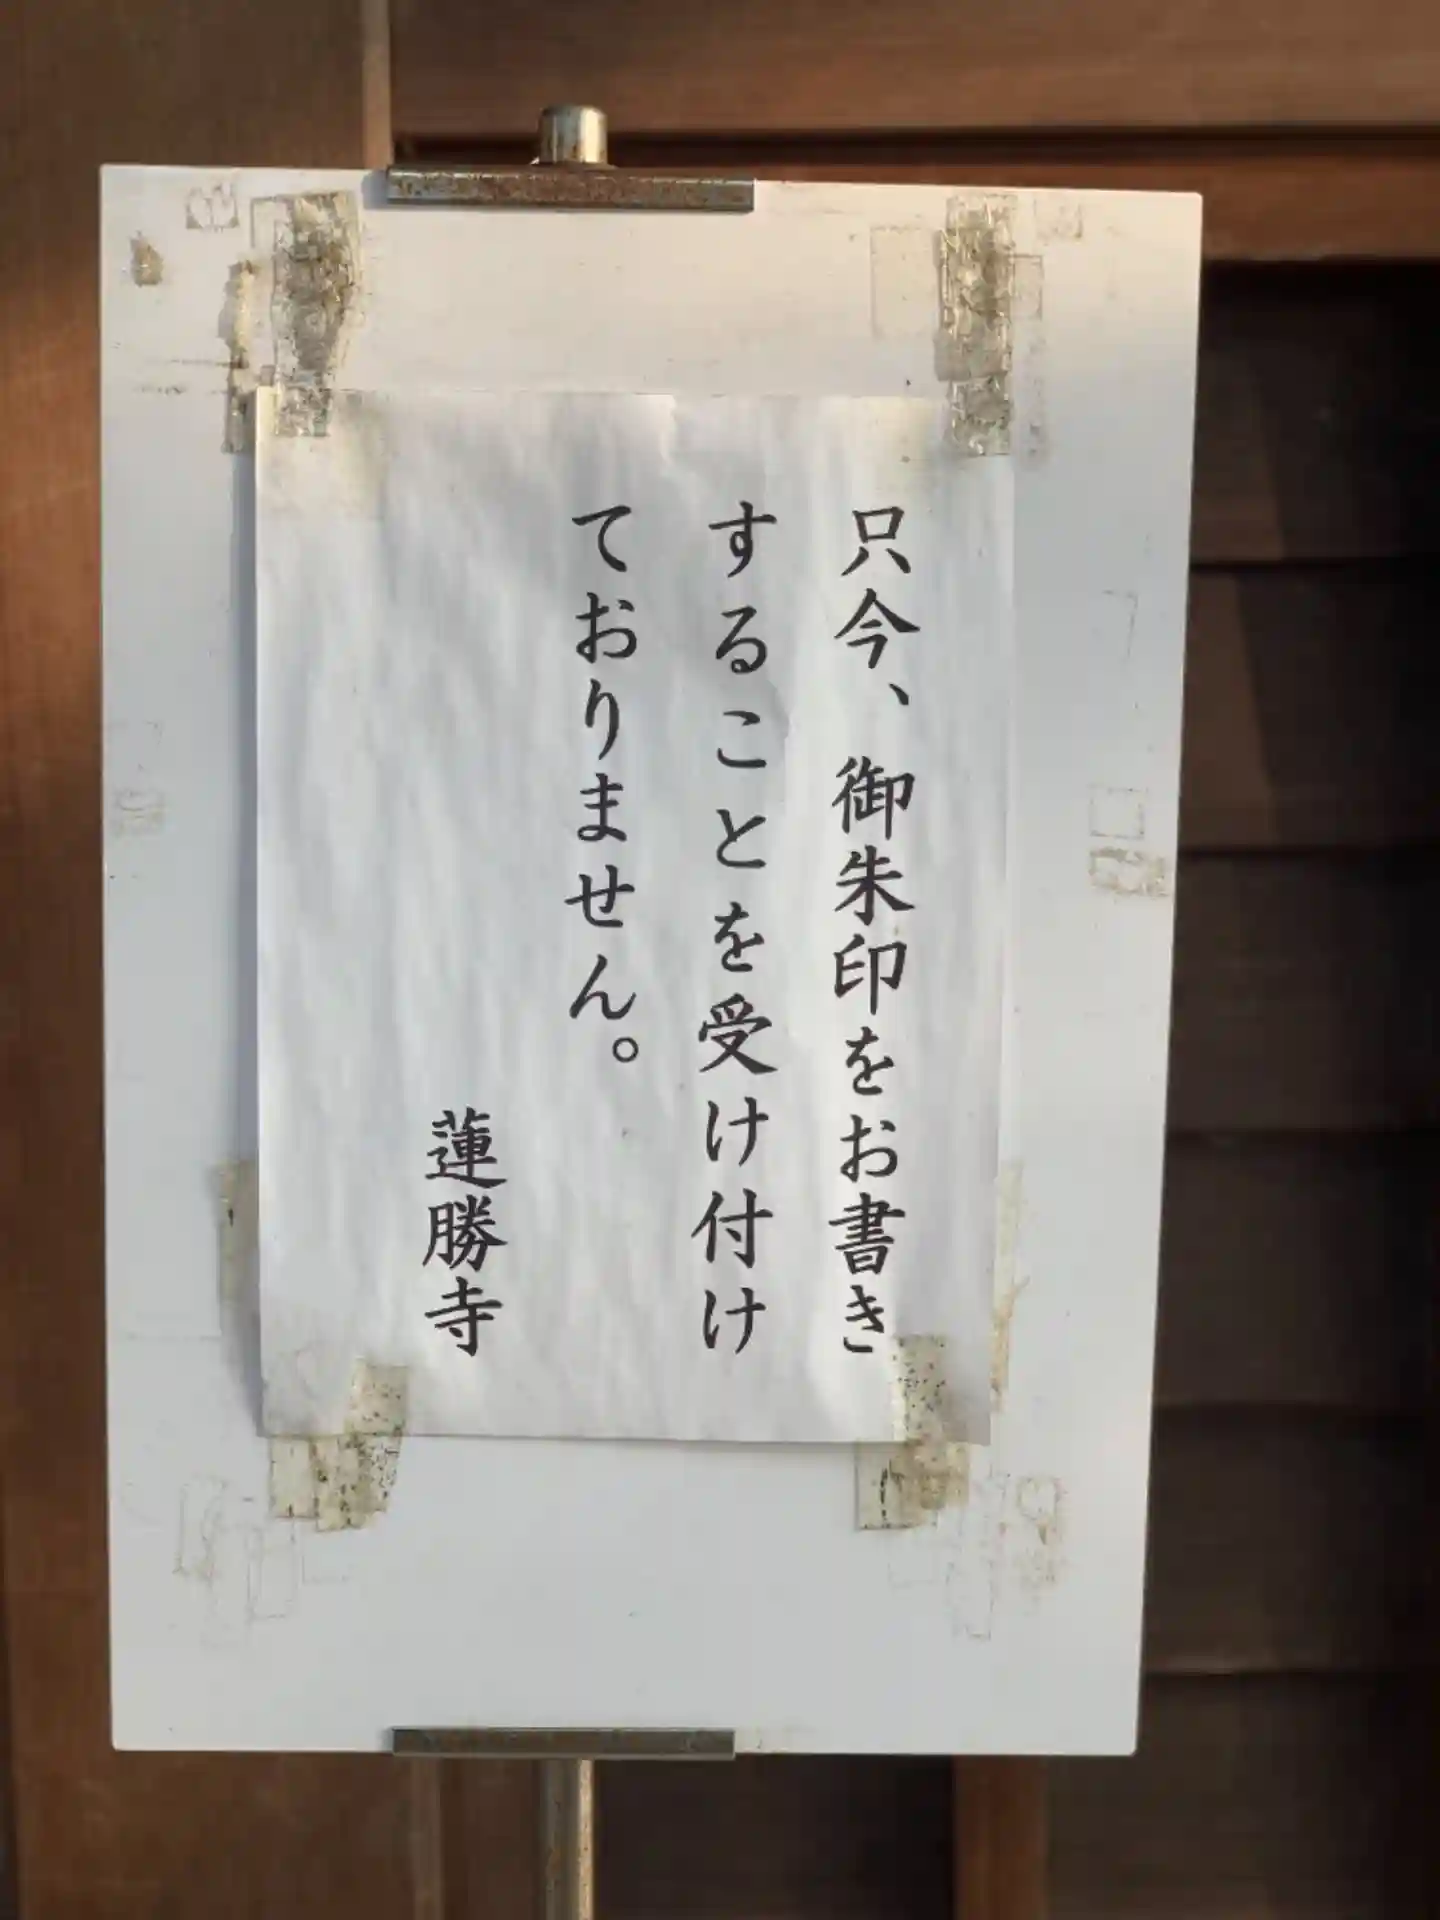 只今、御朱印をお書き
することを受け付け
ておりません。
蓮勝寺